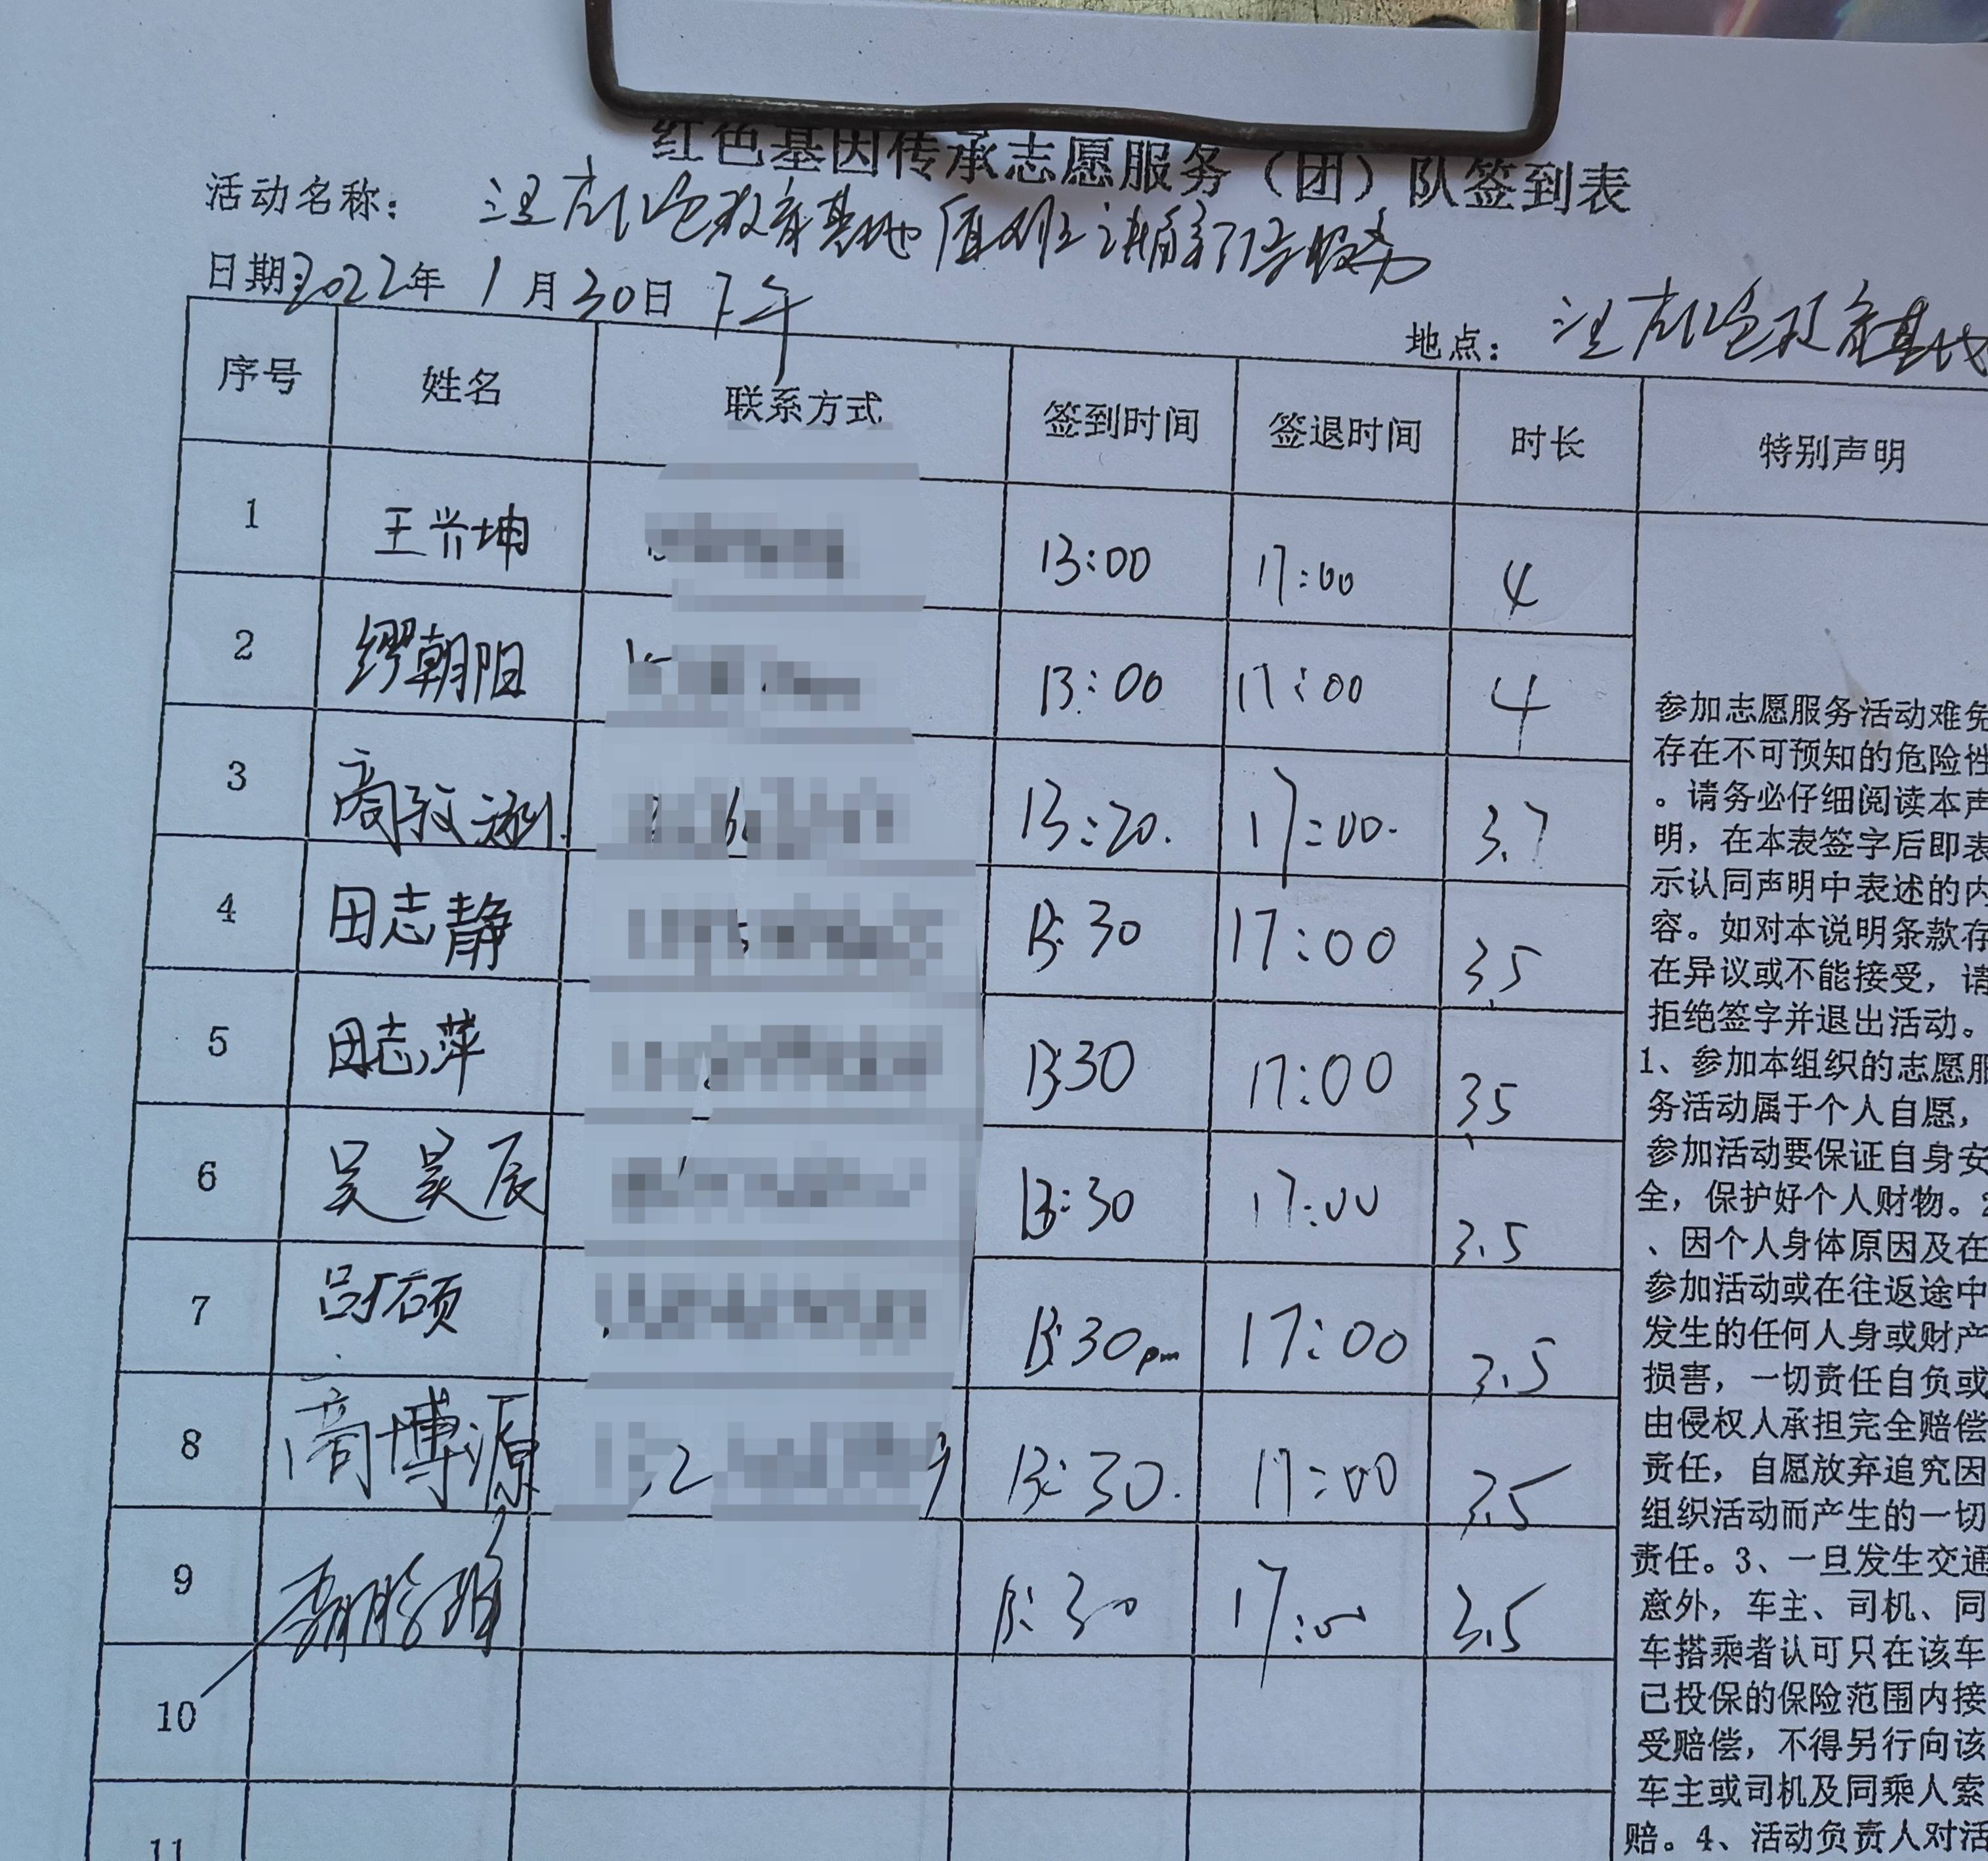 红色基因传承志愿服务（团）队签到表
活动名称： 教育基地值班讲解 服务
日期：2022年 1月30日 下午
地点： 教育基地
序号 姓名 联系方式 签到时间 签退时间 时长 特别声明
1 王兴坤 13:00 17:00 4
2 缪朝阳 13:00 17:00 4
3 商 13:20. 17:00. 3.7
4 田志静 13:30 17:00 3.5
5 田志萍 13:30 17:00 3.5
6 吴昊辰 13:30 17:00 3.5
7 吕硕 13:30pm 17:00 3.5
8 商博源 2 9 13:30. 17:00 3.5
9 13:30 17:00 3.5
10
11
参加志愿服务活动难免
存在不可预知的危险性
。请务必仔细阅读本声
明，在本表签字后即表
示认同声明中表述的内
容。如对本说明条款存
在异议或不能接受，请
拒绝签字并退出活动。
1、参加本组织的志愿服
务活动属于个人自愿，
参加活动要保证自身安
全，保护好个人财物。2
、因个人身体原因及在
参加活动或在往返途中
发生的任何人身或财产
损害，一切责任自负或
由侵权人承担完全赔偿
责任，自愿放弃追究因
组织活动而产生的一切
责任。3、一旦发生交通
意外，车主、司机、同
车搭乘者认可只在该车
已投保的保险范围内接
受赔偿，不得另行向该
车主或司机及同乘人索
赔。4、活动负责人对活